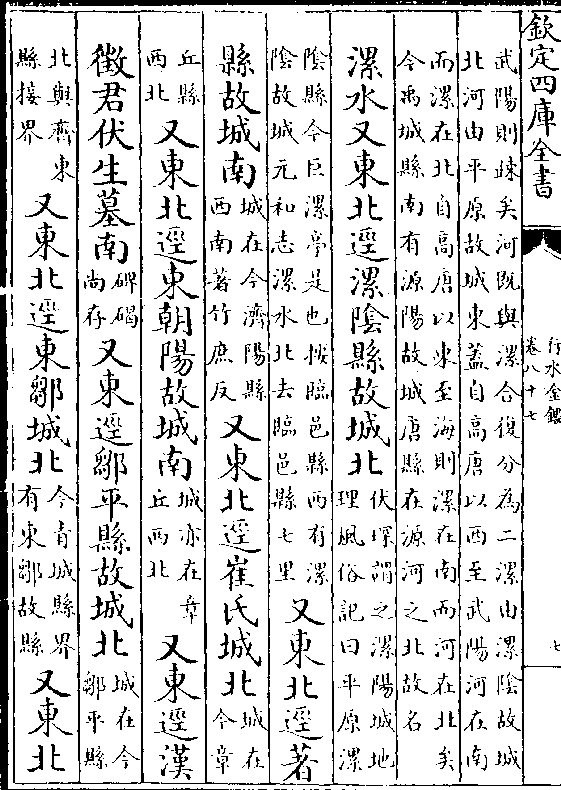 欽定四庫全書
行水金鑑
卷八十七
七
武陽則疎矣河既與漯合復分為二漯由漯陰故城
北河由平原故城東蓋自高唐以西至武陽河在南
而漯在北自高唐以東至海則漯在南而河在北矣
今禹城縣南有源陽故城唐縣在源河之北故名
漯水又東北逕漯陰縣故城北伏琛謂之漯陽城地理風俗記曰平原漯
陰縣今巨漯亭是也按臨邑縣西有漯陰故城元和志漯水北去臨邑縣七里又東北逕著
縣故城南城在今濟陽縣西南著竹庶反又東北逕崔氏城北城在今章
丘縣西北又東北逕東朝陽故城南城亦在章丘西北又東逕漢
徵君伏生墓南碑碣尚存又東逕鄒平縣故城北城在今鄒平縣
北與齊東縣接界又東北逕東鄒城北今青城縣界有東鄒故縣又東北